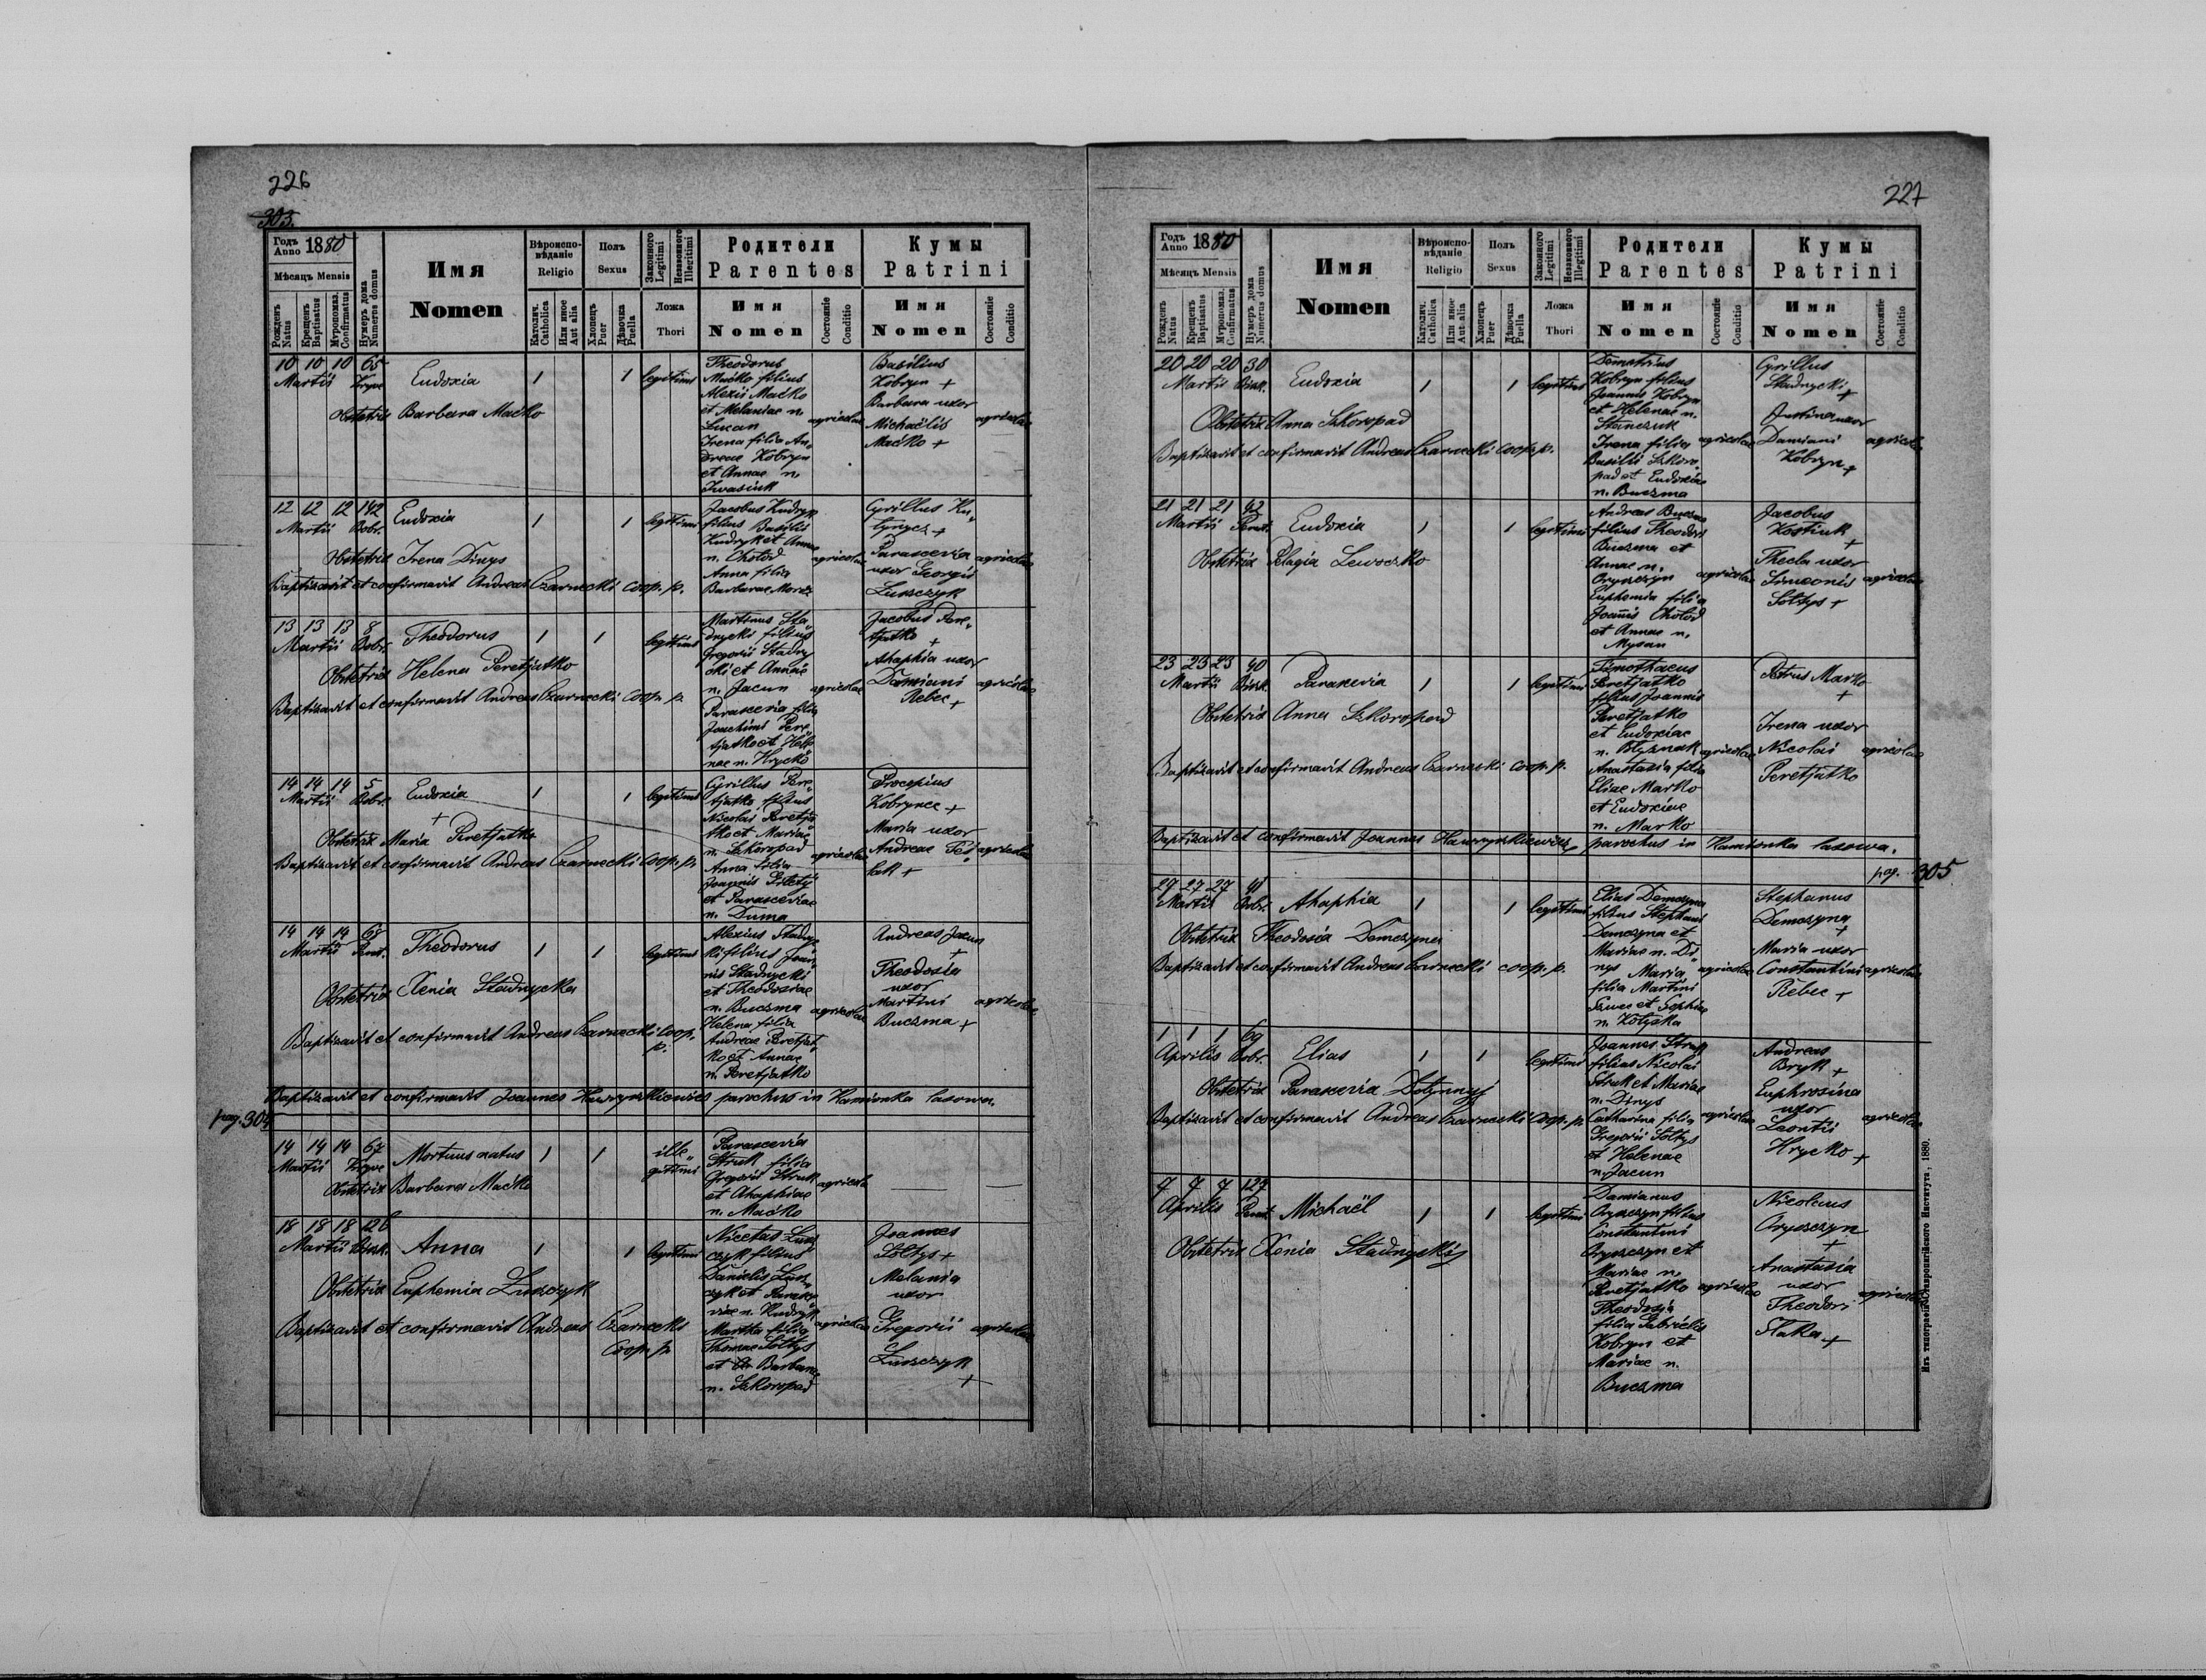 226
303.
Годъ Anno 1880
Мѣсяцъ Mensis
Рожденъ Natus
Крещенъ Baptisatus
Мѵропомаз. Confirmatus
Нумеръ дома Numerus domus
Имя
Nomen
Вѣроисповѣданіе
Religio
Католич. Catholica
Или иное Aut alia
Полъ
Sexus
Хлопецъ Puer
Дѣвочка Puella
Законного Legitimi
Незаконного Illegitimi
Ложа
Thori
Родители
Parentes
Имя
Nomen
Состояніе
Conditio
Кумы
Patrini
Имя
Nomen
Состояніе
Conditio
10 10 10 65
Martii
Eudoxia 1 1 legitimi
Obstetrix Barbara Maćko
Theodorus
Maćko filius
Alexii Maćko
et Melaniae n.
Lucan
Irena filia An„
dreae Kobryn
et Annae n.
Iwasiuk
agricolae
Basilius
Kobryn +
Barbara uxor
Michaëlis
Maćko +
agricolae
12 12 12 142
Martii Bobr.
Eudoxia 1 1 legitimi
Obstetrix Irena Dinys
Baptizavit et confirmavit Andreas Czarnecki coop. p.
Jacobus Kudryk
filius Basilii
Kudryk et Annae
n. Chołod
Anna filia
Barbarae
agricolae
Cyrillus
Parascevia
uxor Georgii
Luszczyk
agricolae
13 13 13 8
Martii Bobr.
Theodorus 1 1 legitimi
Obstetrix Helena Peretjatko
Baptizavit et confirmavit Andreas Czarnecki coop. p.
Martinus Sta„
dnycki filius
Gregorii Stadny
cki et Annae
n. Jacun
Parascevia filia
Joachimi Pere„
tjatko et Hele
nae n. Hrycko
agricolae
Jacobus Pere„
tjatko +
Ahaphia uxor
Damiani
Rebec +
agricolae
14 14 14 5
Martii Bobr.
Eudoxia 1 1 legitimi
+
Obstetrix Maria Peretjatko
Baptizavit et confirmavit Andreas Czarnecki coop. p.
Cyrillus Pere„
tjatko filius
Nicolai Peretja
tko et Mariae
n. Szkoropad
Anna filia
Joannis
et Parasceviae
n. Duma
agricolae
Procopius
Kobrynec +
Maria uxor
Andreae
agricolae
14 14 14 68
Martii
Theodorus 1 1 legitimi
Obstetrix Xenia Stadnycka
Baptizavit et confirmavit Andreas Czarnecki coop.
p.
Alexius Stadny
cki filius Joan
nis Stadnycki
et Theodosiae
n. Buczma
Helena filia
Andreae Peretjat„
ko et Annae
n. Peretjatko
agricolae
Andreas Jacun
+
Theodosia
uxor
Martini
Buczma +
agricolae
Baptizavit et confirmavit Joannes Hawryszkiewicz parochus in Kamionka lasowa.
pag. 304
14 14 14 67
Martii
Mortuus natus 1 1 ille„
gitimi
Obstetrix Barbara Maćko
Parascevia
Struk filia
Gregorii Struk
et Ahaphiae
n. Maćko
agricola
18 18 18 126
Martii
Anna 1 1 legitimi
Obstetrix Euphemia Luszczyk
Baptizavit et confirmavit Andreas Czarnecki
coop. p.
Nicetas Lusz
czyk filius
Danielis Lusz„
czyk et Parasce
viae n. Kudryk
Martha filia
Thomae Soltys
et Barbarae
n. Szkoropad
agricolae
Joannes
Soltys +
Melania
uxor
Gregorii
Luszczyk
+
agricolae
227
Годъ Anno 1880
Мѣсяцъ Mensis
Рожденъ Natus
Крещенъ Baptisatus
Мѵропомаз. Confirmatus
Нумеръ дома Numerus domus
Имя
Nomen
Вѣроисповѣданіе
Religio
Католич. Catholica
Или иное Aut alia
Полъ
Sexus
Хлопецъ Puer
Дѣвочка Puella
Законного Legitimi
Незаконного Illegitimi
Ложа
Thori
Родители
Parentes
Имя
Nomen
Состояніе
Conditio
Кумы
Patrini
Имя
Nomen
Состояніе
Conditio
20 20 20 30
Martii
Eudoxia 1 1 legitimi
Obstetrix Anna Szkoropad
Baptizavit et confirmavit Andreas Czarnecki coop. p.
Demetrius
Kobryn filius
Joannis Kobryn
et Helenae n.
Stanczuk
Irena filia
Basilii Szkoro„
pad et Eudoxiae
n. Buczma
agricolae
Cyrillus
Stadnycki
+
uxor
Damiani
Kobryn +
agricolae
21 21 21 92
Martii
Eudoxia 1 1 legitimi
Obstetrix Pelagia Lewoczko
Andreas Buczma
filius Theodori
Buczma et
Annae n.
Oryszczyn
Euphemia filia
Joannis Chołod
et Annae n.
Mysan
agricolae
Jacobus
Kostiuk
+
Thecla uxor
Simeonis
Soltys +
agricolae
23 23 23 40
Martii
Parascevia 1 1 legitimi
Obstetrix Anna Szkoropad
Baptizavit et confirmavit Andreas Czarnecki coop. p.
Timothaeus
Peretjatko
filius Joannis
Peretjatko
et Eudoxiae
n. Blyzniak
Anastasia filia
Eliae Marko
et Eudoxiae
n. Marko
agricolae
Petrus Marko
+
Irena uxor
Nicolai
Peretjatko
agricolae
Baptizavit et confirmavit Joannes Hawryszkiewicz parochus in Kamionka lasowa.
pag. 305
27 27 27 41
Martii Bobr.
Ahaphia 1 1 legitimi
Obstetrix Theodosia Demczyna
Baptizavit et confirmavit Andreas Czarnecki coop. p.
Elias Demczyna
filius Stephani
Demczyna et
Mariae n. Di
nys Maria
filia Martini
et Sophiae
n. Kołyska
agricolae
Stephanus
Demczyna
+
Maria uxor
Constantini
Rebec +
agricolae
1 1 1 69
Aprilis Bobr.
Elias 1 1 legitimi
Obstetrix Parascevia
Baptizavit et confirmavit Andreas Czarnecki coop. p.
Joannes Struk
filius Nicolai
Struk et Mariae
n. Dinys
Catharina filia
Gregorii Soltys
et Helenae
n. Jacun
agricolae
Andreas
Bryk +
Euphrosina
uxor
Leontii
Hrycko +
agricolae
7 7 7 127
Aprilis
Michaël 1 1 legitimi
Obstetrix Xenia
Damianus
Oryszczyn filius
Constantini
Oryszczyn et
Mariae n.
Peretjatko
Theodosia
filia Gabrielis
Kobryn et
Mariae n.
Buczma
agricolae
Nicolaus
Oryszczyn
+
Anastasia
uxor
Theodori
Slaka +
agricolae
Изъ типографіи Ставропигійского Института, 1880.